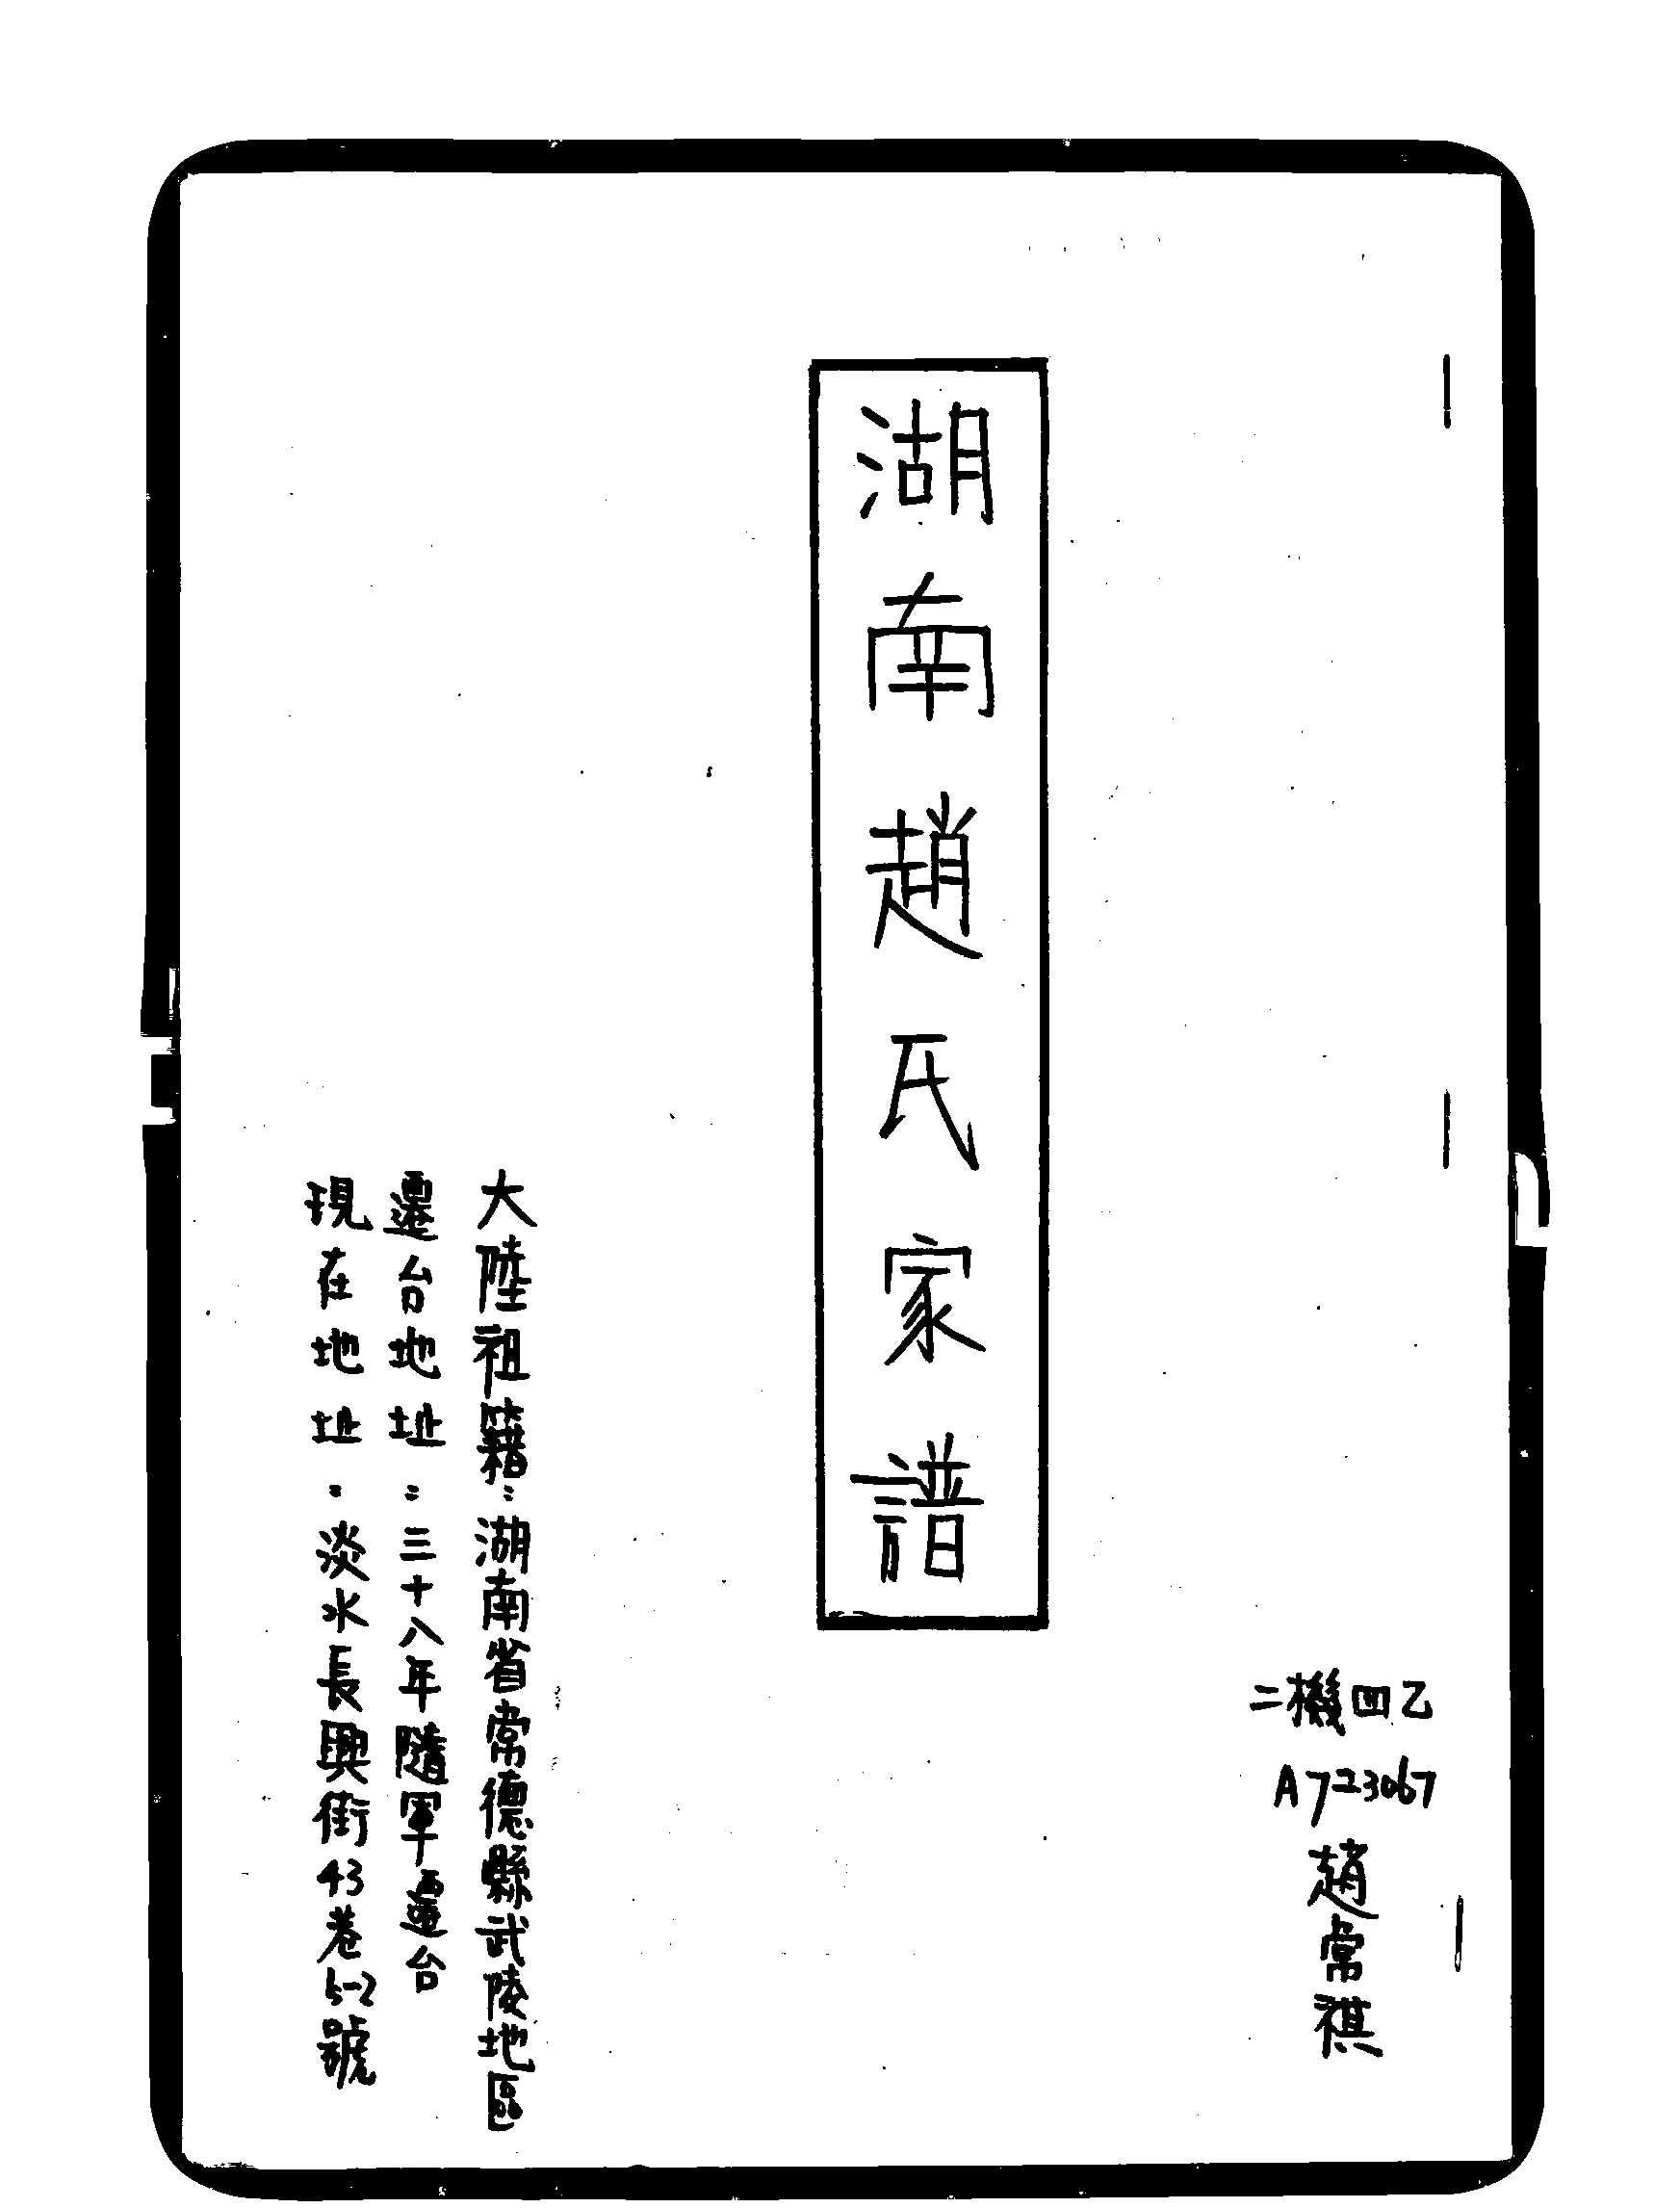 二機四乙
A723067
趙常祺
湖南趙氏家譜
大陸祖籍：湖南省常德縣武陵地區
遷台地址：三十八年隨軍遷台
現在地址：淡水長興街43巷5-2號